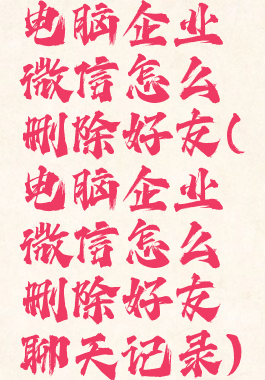 电脑企业
微信怎么
删除好友(
电脑企业
微信怎么
删除好友
聊天记录)